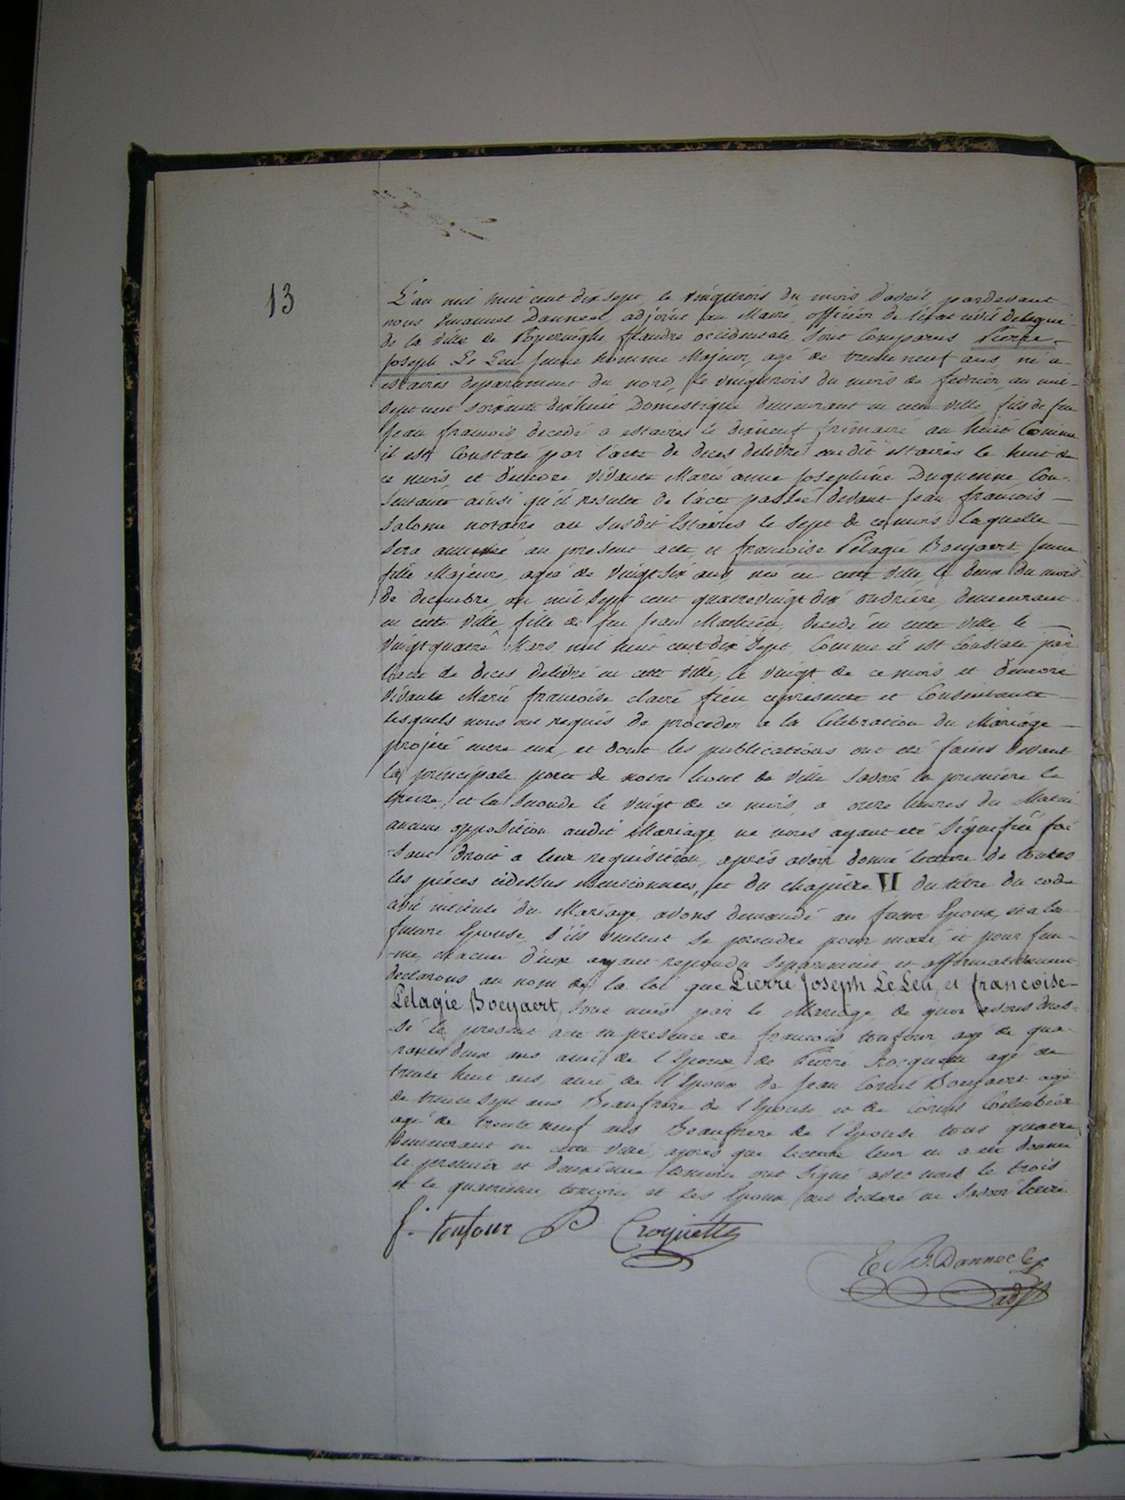 13
L'an mil huit cent dix sept, le vingttrois du mois d'avril pardevant
nous Emanuel Dannoel, adjoint au Maire, officier de l'état civil délégué
de la ville de Poperinghe flandre occidentale sont comparus Pierre
Joseph Le Leu jeune homme Majeur, agé de trente neuf ans, né a
estaires département du nord, le vingttrois du mois de fevrier, an mil
sept cent soixante dixhuit Domestique demeurant en cette ville, fils de feu
Jean francois decedé a estaires le dixneuf frimaire an huit Comme
il est Constaté par l'acte de deces delivré audit estaires le huit de
ce mois, et d'encore vivante Marie anne Josephine Duquenne Con-
sentante ainsi qu'il resulte de l'acte passé devant Jean francois
Salome notaire au susdit Estaires le sept de ce mois laquelle
sera annexée au present acte, et francoise Pelagie Boeyaert jeune
fille Majeure, agée de vingt six ans, née en cette ville, le deux du mois
de decembre, an mil sept cent quatrevingt dix ouvrière, demeurant
en cette ville, fille de feu Jean Mathieu, decedé en cette ville le
vingtquatre Mars, mil huit cent dix sept, Comme il est Constaté par
l'acte de deces delivré en cette ville, le vingt de ce mois et d'encore
vivante Marie francoise claire fieu cipresente et Consentante
lesquels nous ont requis de proceder a la Celebration du Mariage
projeté entre eux, et dont les publications ont été faites devant
la principale porte de notre hotel de ville savoir la première le
treize, et la seconde le vingt de ce mois, a onze heures du Matin
aucune opposition audit Mariage ne nous ayant été signifiée fai-
sant droit a leur requisition, après avoir donné lecture de toutes
les pièces cidessus mentionnées, et du chapitre VI du titre du code
civil intitulé du Mariage, avons demandé au futur Epoux, et a la
future Epouse, s'ils veulent se prendre pour mari, et pour fem-
me, chacun d'eux ayant repondu séparement et affirmativement
declarons au nom de la loi que Pierre Joseph Le Leu, et francoise
Pelagie Boeyaert, sont unis par le Mariage de quoi avons dres-
sé le present acte en presence de francois toufour agé de qua-
rantedeux ans ami de l'Epoux, de Pierre Croquette agé de
trente huit ans, ami de l'Epoux de Jean Cornil Boeyaert agé
de trente sept ans Beaufrère de l'Epouse et de Cornil
agé de trente neuf ans Beaufrere de l'Epouse tous quatre
demeurant en cette ville, après que lecture leur en a été donnée
le premier et deuxième temoin ont signé avec nous le trois
et le quatrieme temoin et les Epoux ont declaré ne savoir Ecrire
f. toufour P Croquette
E. B. Dannoel
adj